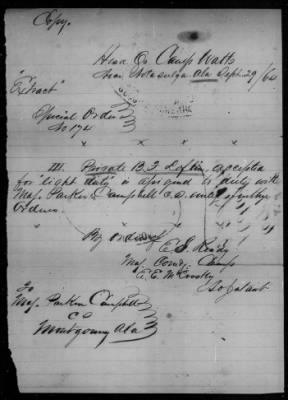 Copy.
Head Qrs Camp Watts
Near Notasulga Ala Sept. 29/64
"Extract"
Special Orders
No 174
x x x x
III. Private B. F. Loftin, accepted
for "light duty" is assigned to duty with
Maj. Parker Campbell C.S. until further
Orders.
By order of
Maj. Comdg. Camps
To
Maj. Parker Campbell
C S
Montgomery Ala